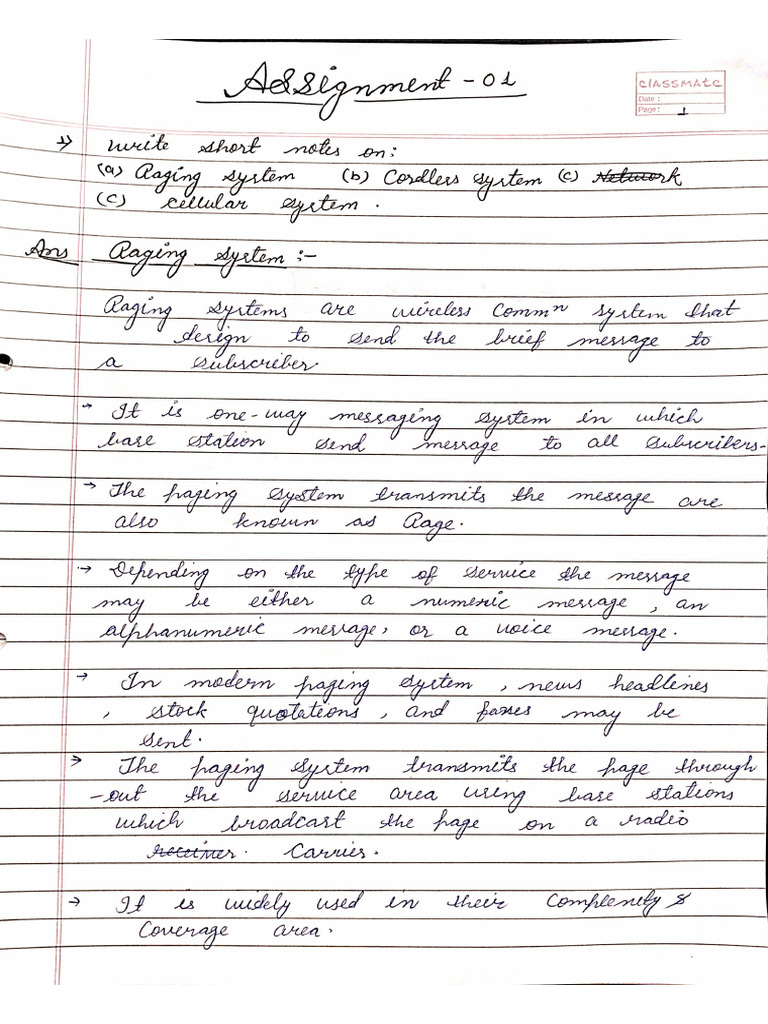 Assignment - 01
classmate
Date :
Page : 1
1) Write short notes on:
(a) Paging system (b) Cordless system (c) Network
(c) cellular system.
Ans Paging system :-
Paging systems are wireless commⁿ system that
design to send the brief message to
a subscriber.
→ It is one-way messaging system in which
base station send message to all subscribers-
→ The paging system transmits the message are
also known as Page.
→ Depending on the type of service the message
may be either a numeric message, an
alphanumeric message, or a voice message.
→ In modern paging system, news headlines
, stock quotations, and faxes may be
sent.
→ The paging system transmits the page through
-out the service area using base stations
which broadcast the page on a radio
receiver. Carrier.
→ It is widely used in their complenity &
Coverage area.